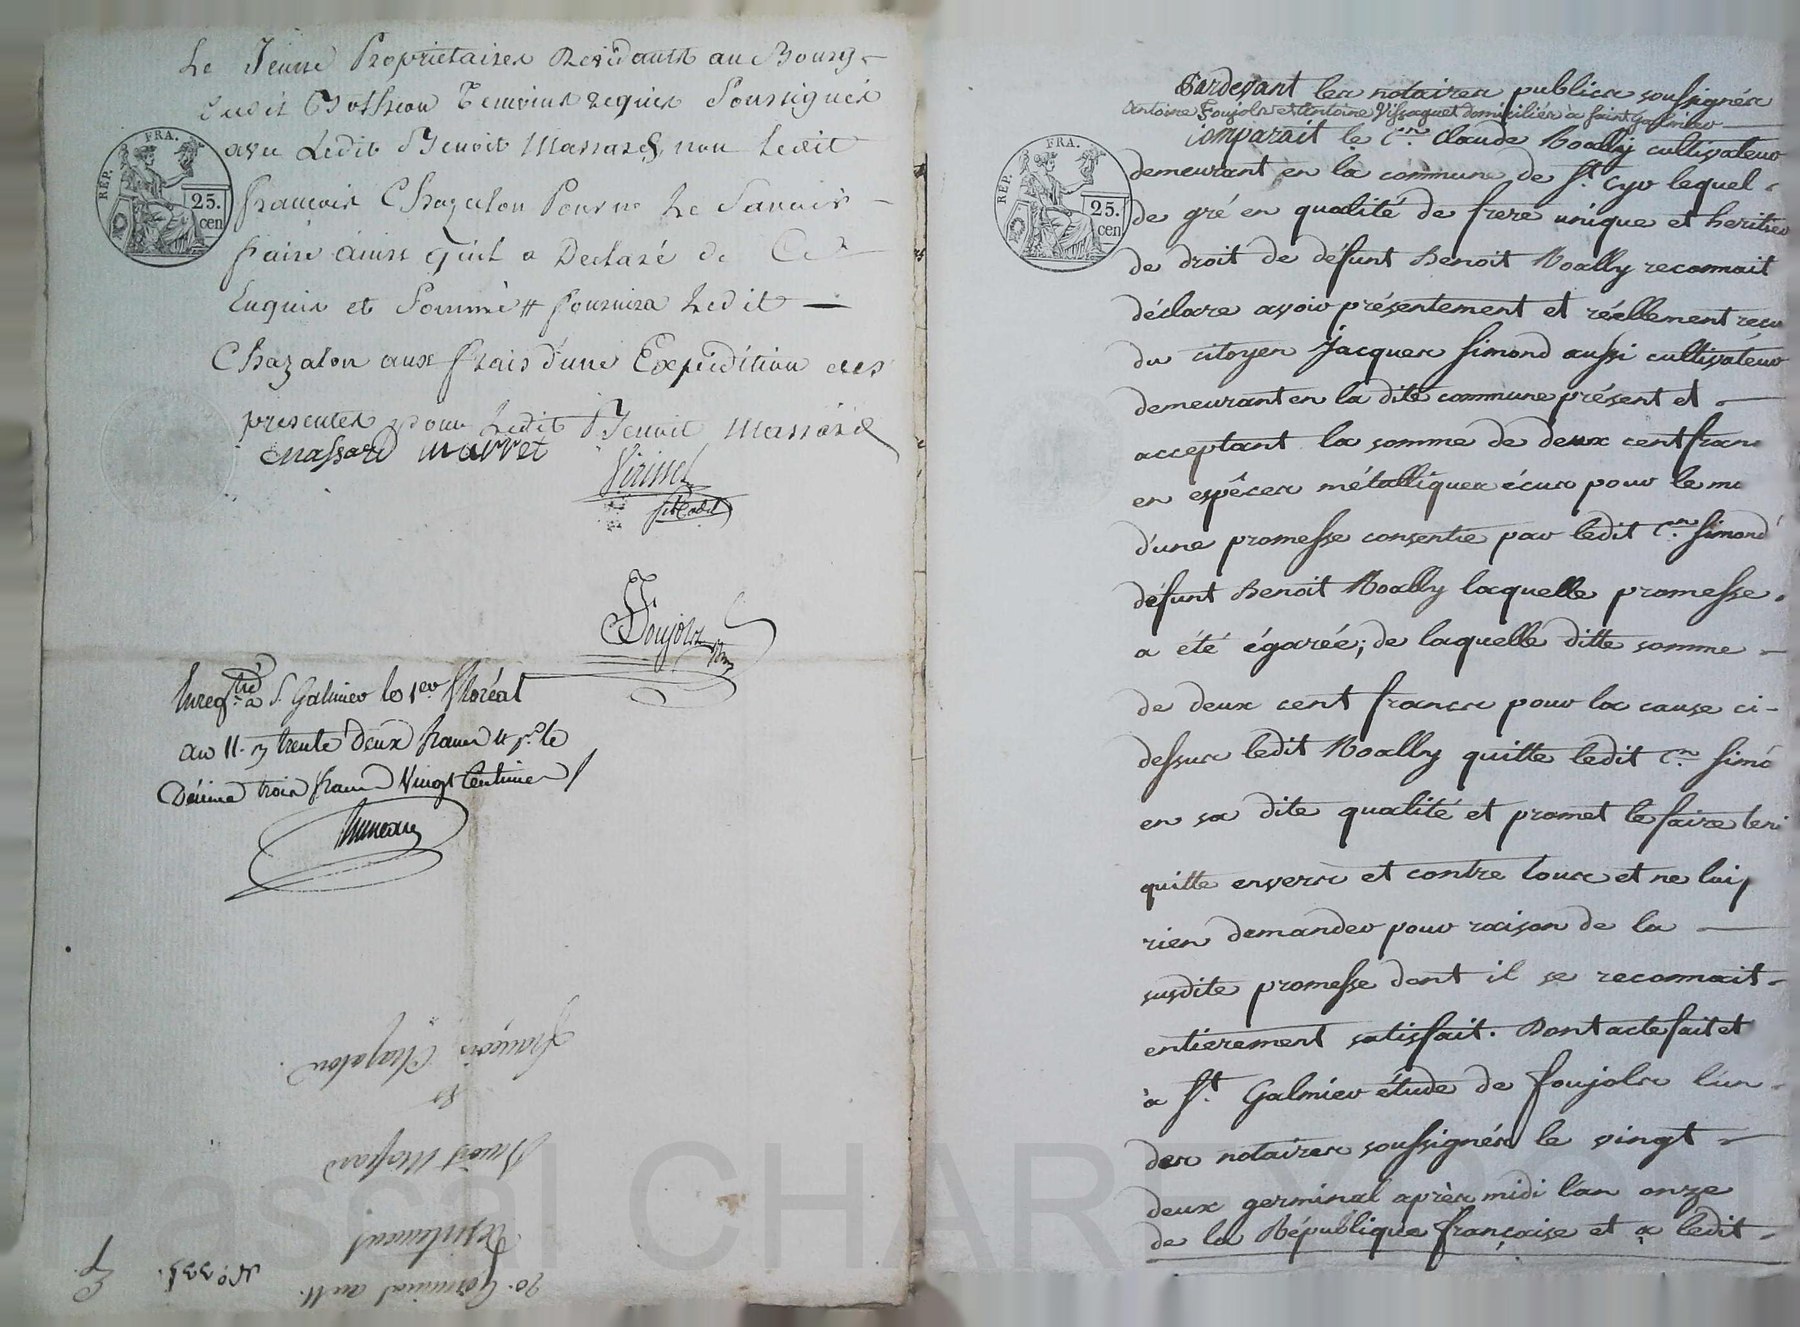 Le Jeune Propriétaires Résidants au Bourg
dudit Témoins requis Soussignés
avec Ledit Benoit Massard, non Ledit
françois Chazalon Pour ne Le Savoir
faire ainsi qu'il a Déclaré de
Enquis et Sommé # fournira Ledit
Chazalon aux frais d'une Expédition des
présentes pour Ledit Benoit Massard
massard marret
Foujols
Enregtré à St. Galmier le 1er floréal
an 11. trente deux francs le
Décime trois francs Vingt Centimes
françois Chazalon
Benoit Massard
20. Germinal an 11.
REP. FRA.
25. cen
Pardevant les notaires publics soussignés
Antoine Foujols et Antoine Vissaguet domiciliés à saint galmier
Comparait le Cn. Claude Boally cultivateur
demeurant en la commune de St. Cyr lequel
de gré en qualité de frere unique et heritier
de droit de défunt Benoit Boally reconnait
déclare avoir présentement et réellement reçu
du citoyen Jacques Simond aussi cultivateur
demeurant en la dite commune présent et
acceptant la somme de deux cent franc
en espèces métalliques écus pour le
d'une promesse consentie par ledit Cn. Simond
défunt Benoit Boally laquelle promesse
a été égarée; de laquelle ditte somme
de deux cent francs pour la cause ci-
dessus ledit Boally quitte ledit Cn Simo
en sa dite qualité et promet le faire teni
quitte envers et contre tous et ne lui
rien demander pour raison de la
susdite promesse dont il se reconnait
entierement satisfait. Dont acte fait et
à St. Galmier étude de foujols l'un
des notaires soussignés le vingt
deux germinal après midi l'an onze
de la République française et a ledit
REP. FRA.
25. cen
Pascal CHAREYRON